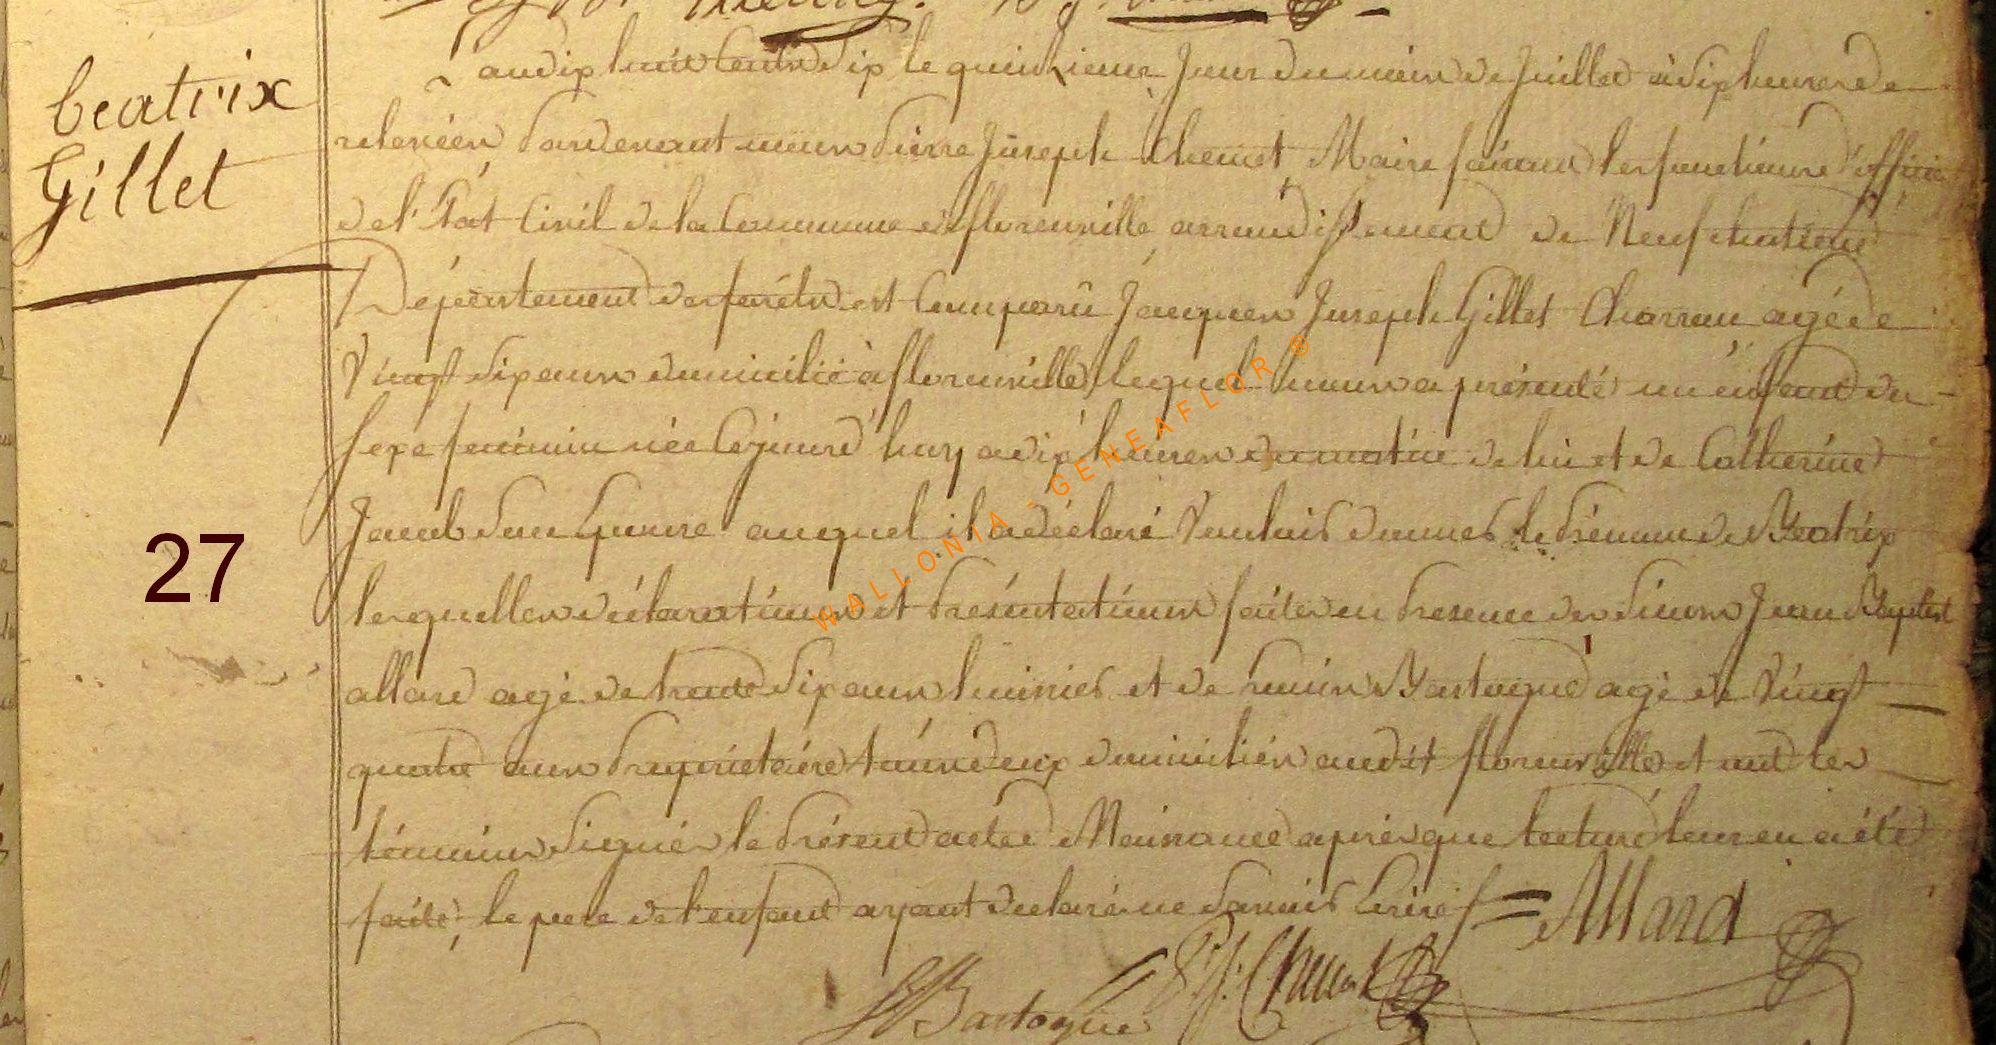 beatrix
Gillet
27
L'an dix huit Cent dix le quinzieme Jour du mois de Juillet à dix heures de
relevéen Pardevant nous Pierre Joseph Chenot Maire faisant les fonctions d'officier
de l'Etat Civil de la Commune de florenville arrondissement de Neufchateau
Département des forêts est Comparu Jacques Joseph Gillet Charron agé de
Vingt six ans domicilié à florenville lequel nous a présenté un enfant du
sexe feminin née Cejourd'huy a dix heures du matin de lui et de Catherine
Jacob son Epouse auquel il a déclaré Vouloir donner le prénom de Beatrix
lesquelles déclarations et présentations faites en presence des Sieurs Jean Baptist
allard agé de trente six ans huissier et de Bastogne agé de Vingt
quatre ans Propriétaire tous deux domiciliés audit florenville et ont les
témoins signés le Présent acte de Naissance après que lecture leur en a été
faite, le pere de l'enfant ayant declaré ne savoir Ecrire
Allard
P: J: Chenot
Bastogne
WALLONIA - GENEAFLOR ®